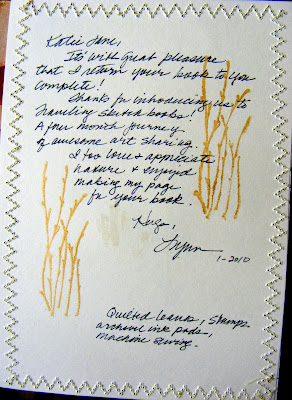 Katie Jane,
Its with great pleasure
that I return your book to you
complete!
Thanks for introducing us to
Traveling Sketch books!
A four month journey
of awesome art sharing.
I too love & appreciate
nature & enjoyed
making my page
for your book.
Hugs,
Lynn
1-2010
Quilted leaves, stamps
archival ink pads,
machine sewing.